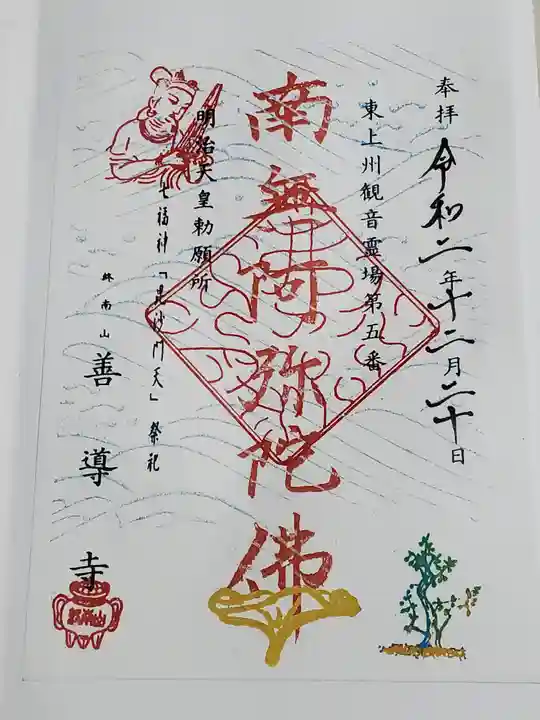 奉拝 令和二年十二月二十日
東上州観音霊場第五番
南無阿弥陀佛
明治天皇勅願所
七福神「毘沙門天」祭祀
終南山 善導寺